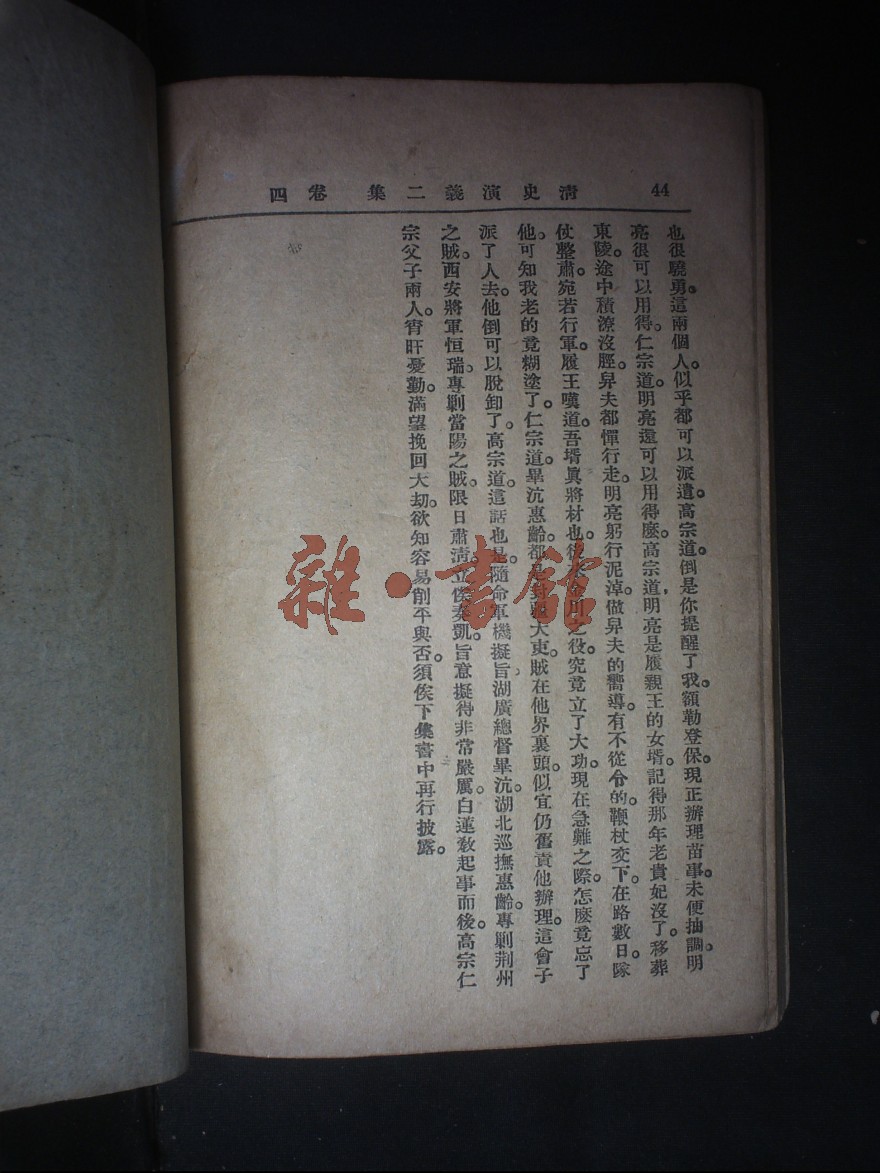 清史演義二集 卷四
44
也很驍勇。這兩個人。似乎都可以派遣。高宗道。倒是你提醒了我。額勒登保。現正辦理苗事。未便抽調。明
亮很可以用得。仁宗道。明亮還可以用得麼。高宗道。明亮是履親王的女壻。記得那年老貴妃沒了。移葬
東陵。途中積潦沒脛。舁夫都憚行走。明亮躬行泥淖。做舁夫的嚮導。有不從令的。鞭杖交下。在路數日。隊
仗整肅。宛若行軍。履王嘆道。吾壻眞將材也。後金川之役。究竟立了大功。現在急難之際。怎麼竟忘了
他。可知我老的竟糊塗了。仁宗道。畢沅惠齡。都是大吏。賊在他界裏頭。似宜仍舊責他辦理。這會子
派了人去。他倒可以脫卸了。高宗道。這話也是。隨命軍機擬旨。湖廣總督畢沅。湖北巡撫惠齡。專剿荆州
之賊。西安將軍恒瑞。專剿當陽之賊。限日肅淸。立俟奏凱。旨意擬得非常嚴厲。白蓮敎起事而後。高宗仁
宗父子兩人。宵旰憂勤。滿望挽回大劫。欲知容易削平與否。須俟下集書中再行披露。
雜·書館